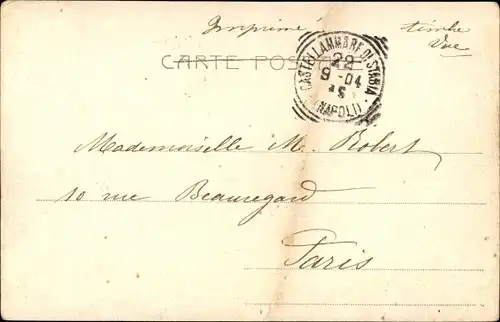 Imprimé
timbre
Vue
CARTE POSTALE
CASTELLAMMARE DI STABIA
22
9-04
(NAPOLI)
Mademoiselle M. Robert
10 rue Beauregard
Paris